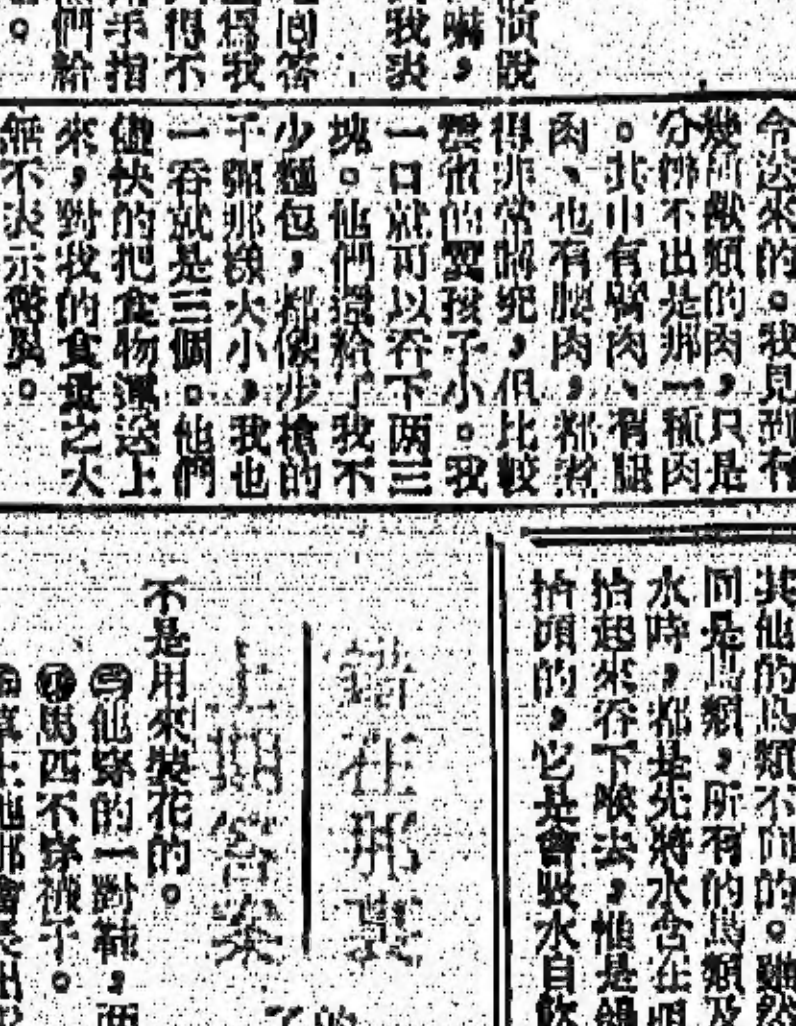 演說
嚇，
我表
回答
為我
得不
手指
們給
。
令送來的。我見到有
幾種獸類的肉，只是
分辨不出是那一種肉
。其中有臂肉、有腿
肉、也有腰肉，都煮
得非常講究，但比較
雲雀的翼孩子小。我
一口就可以吞下两三
塊。他們還給了我不
少麵包，都像步槍的
子彈那樣大小，我也
一吞就是三個。他們
儘快的把食物運送上
來，對我的食量之大
無不表示驚異。
其他的鳥類不同的。雖然
同是鳥類，所有的鳥類及
水時，都是先將水含在咀
抬起來吞下喉去，惟是鴿
抬頭的，它是會吸水自飲
錯在那裏
上期答案
的
了
不是用來裝花的。
㊁他穿的一對鞋，两
馬匹不穿襪子。